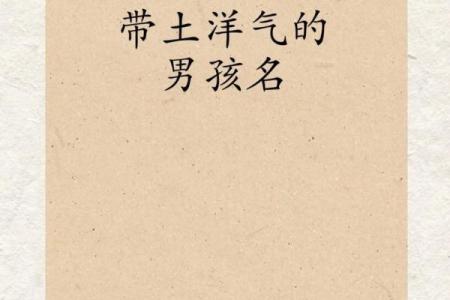 带土洋气的
男孩名